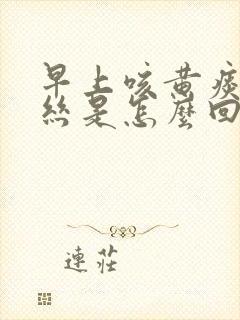 早上咳黄痰
丝是怎麼回
連莊